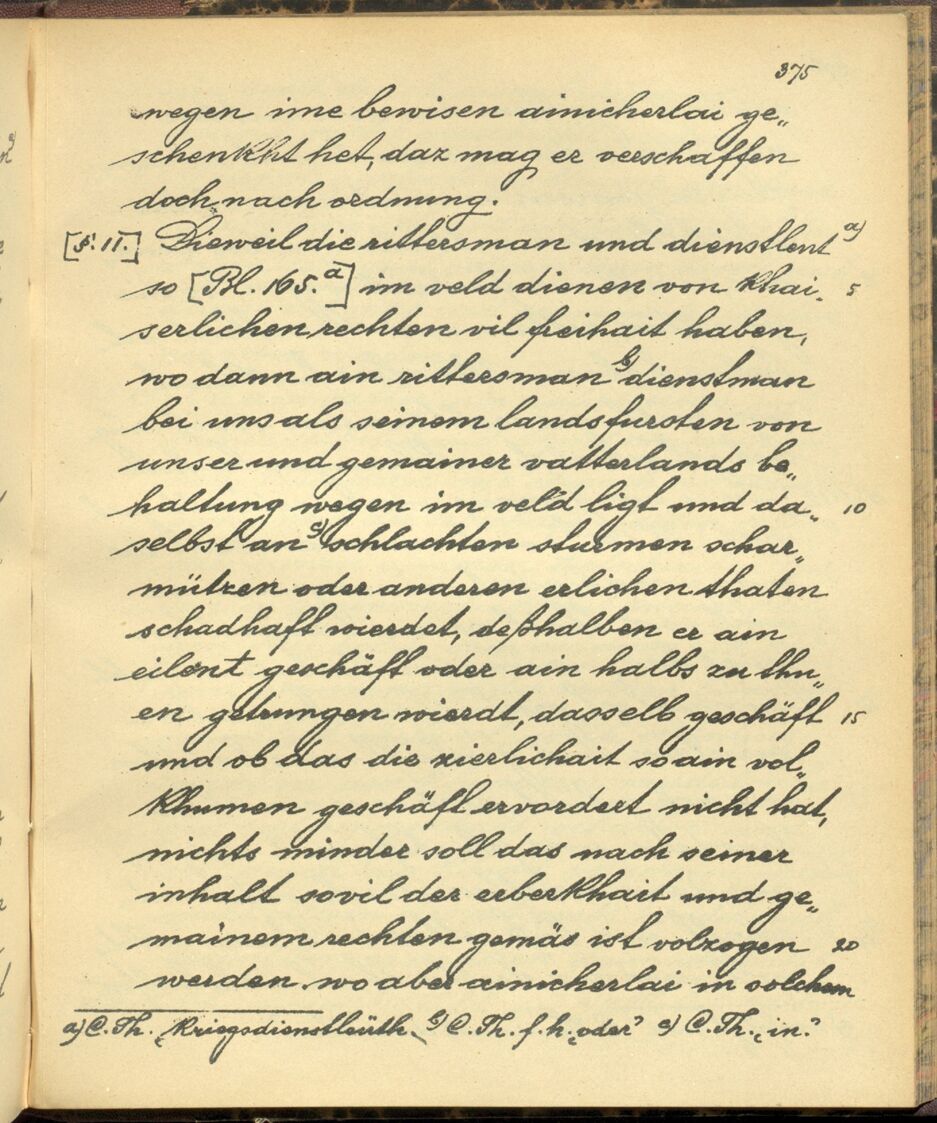 375
wegen ime bewisen ainicherlai ge„
schenkht het, daz mag er verschaffen
doch nach ordnung.
[§. 11.] Dieweil die rittersman und dienstleut a)
so [Bl. 165.a] im veld dienen von khai„ 5
serlichen rechten vil freihait haben,
wo dann ain rittersman b) dienstman
bei uns als seinem landsfursten von
unser und gemainer vatterlands be„
haltung wegen im veld ligt und da„ 10
selbst an c) schlachten sturmen schar„
mützen oder anderen erlichen thaten
schadhaft wierdet, deßhalben er ain
eilent geschäft oder ain halbs zu thu„
en getrungen wierdt, dasselb geschäft 15
und ob das die zierlichait so ain vol„
khumen geschäft ervordert nicht hat,
nichts minder soll das nach seiner
inhalt sovil der erberkhait und ge„
mainem rechten gemäs ist volzogen 20
werden. wo aber ainicherlai in solchem
a) C. Th. „Kriegsdienstleüth„ b) C. Th. f. h. „oder“ c) C. Th. „in“